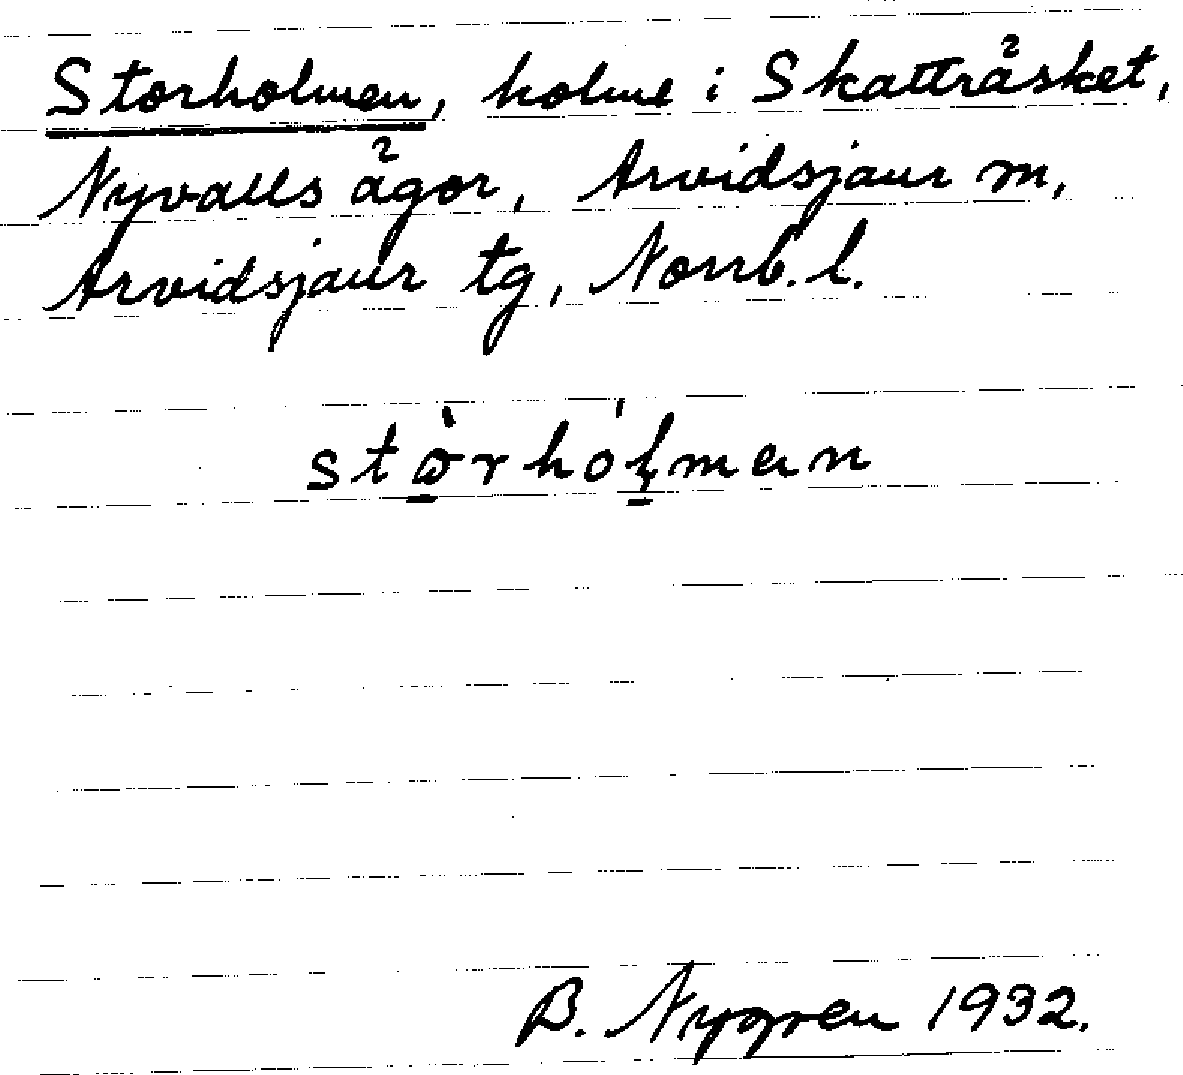 Storholmen, holme i Skatträsket,
Nyvalls ägor, Arvidsjaur sn,
Arvidsjaur tg, Norrb. l.
stòrhólmen
B. Nygren 1932.